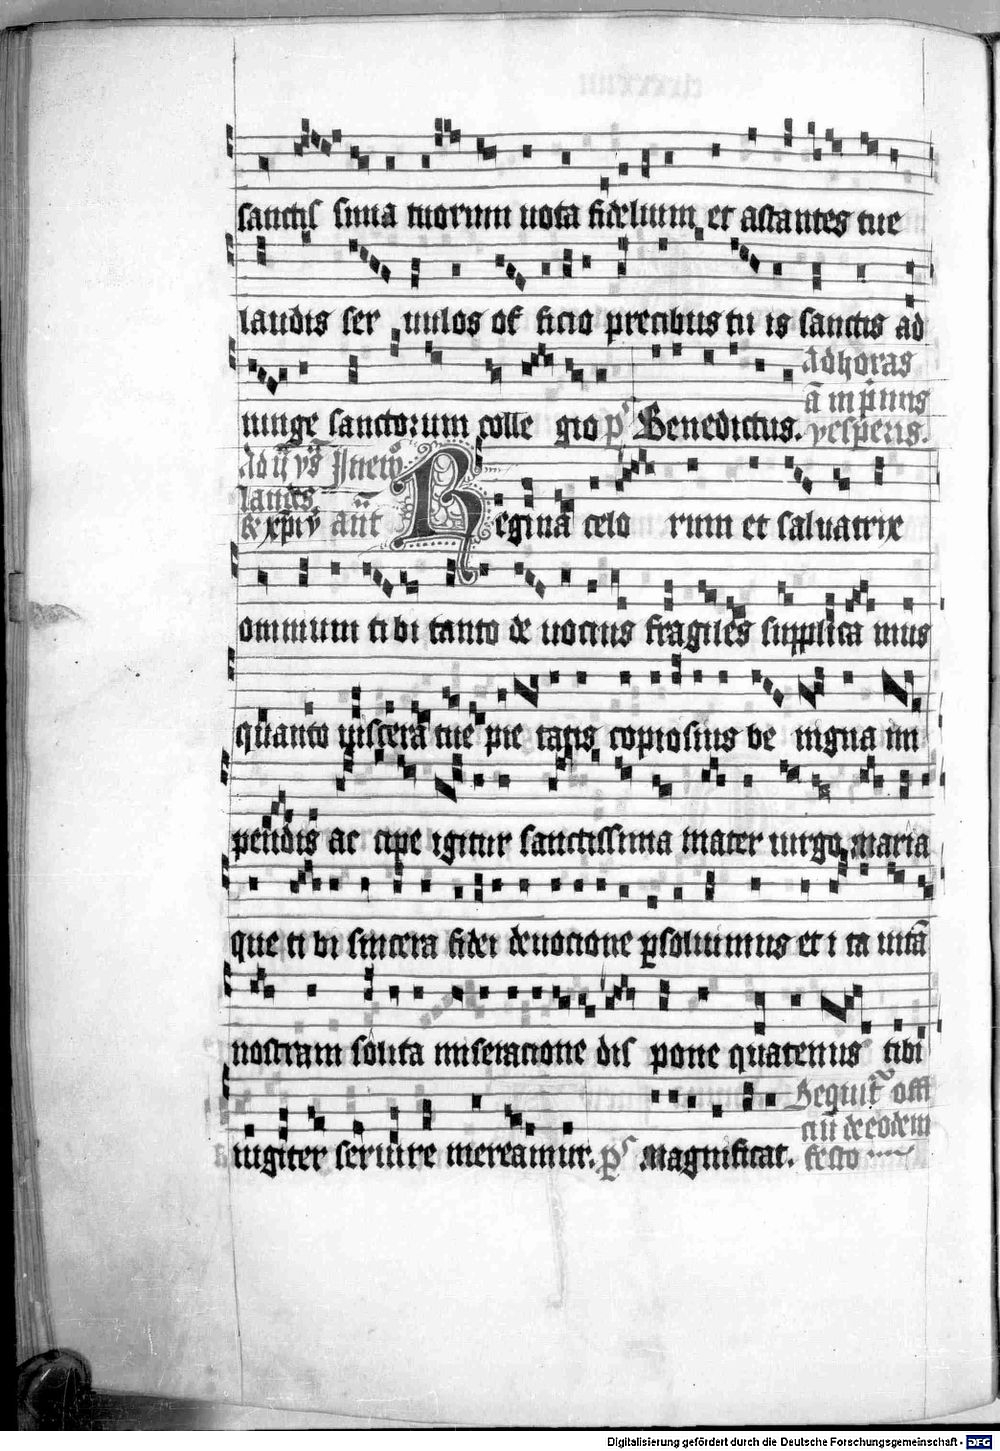 sanctis sima tuorum uota fidelium et astantes tue
laudis ser uulos of ficio precibus tu is sanctis ad
iunge sanctorum colle gio ps Benedictus. Ad horas
ā in p̄mis
vesperis.
Ad ij vs̄
laudes
añt Regina celo rum et saluatrix
omnium ti bi tanto de uocius fragiles supplica mus
quanto uiscera tue pie tatis copiosius be nigna im
pendis ac cipe igitur sanctissima mater uirgo maria
que ti bi sincera fidei deuocione p̱soluimus et i ta uitā
nostram solita miseracione dis pone quatenus tibi
iugiter seruire mereamur. ps Magnificat. Sequit̄ offi
ciū de eodem
festo
Digitalisierung gefördert durch die Deutsche Forschungsgemeinschaft - DFG